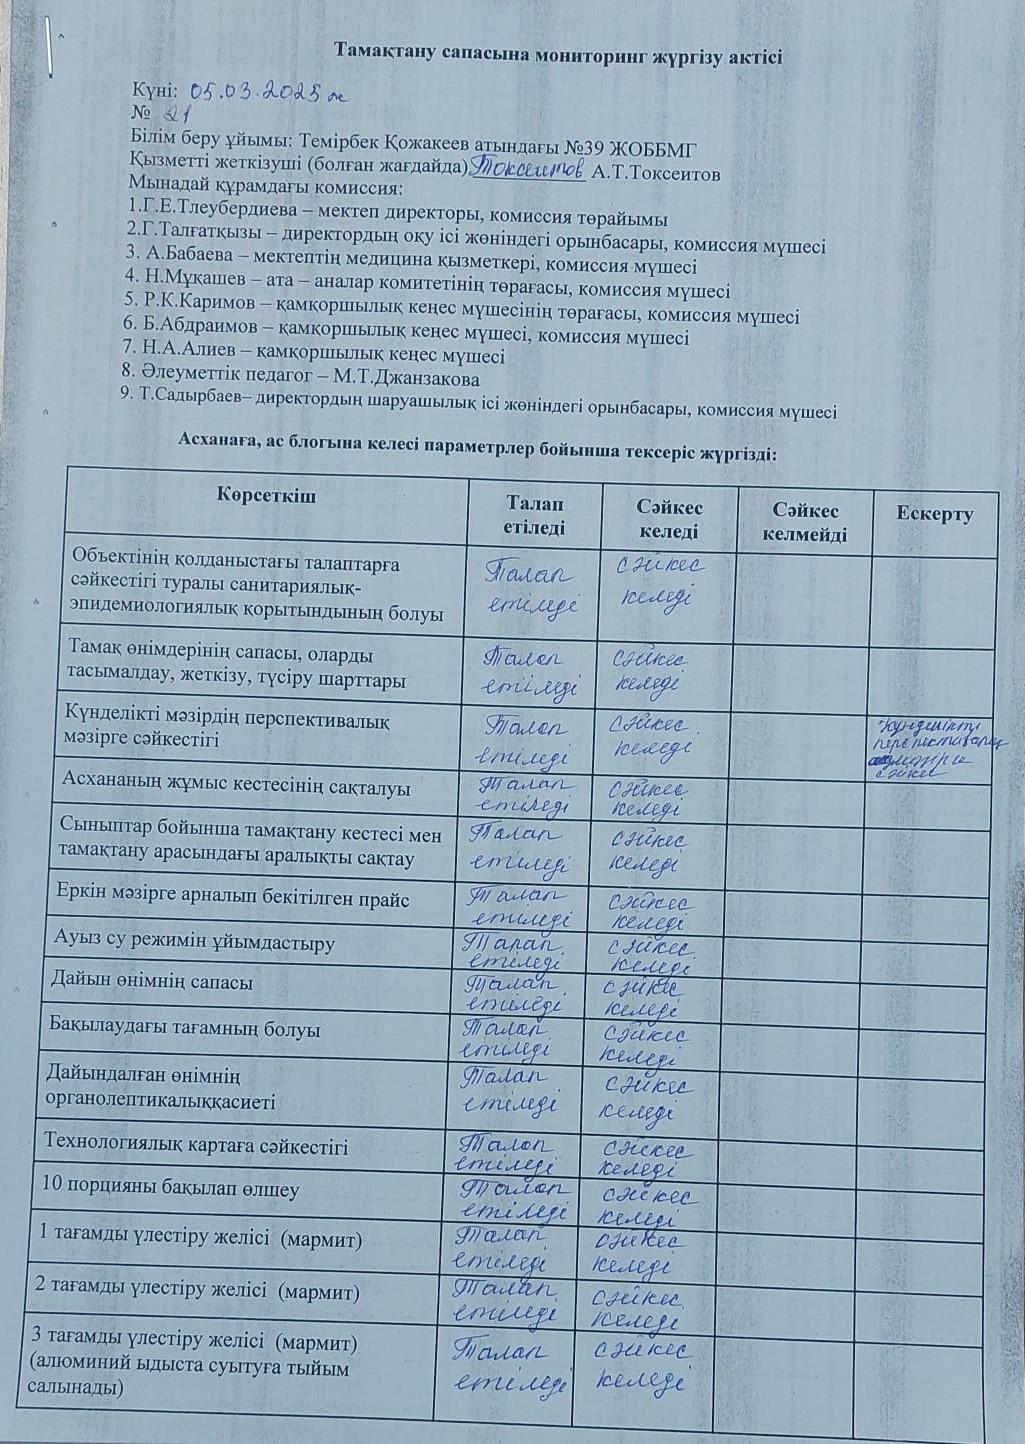 Тамақтану сапасына мониторинг жүргізу актісі
Күні: 05.03.2025ж
№ 21
Білім беру ұйымы: Темірбек Қожакеев атындағы №39 ЖОББМГ
Қызметті жеткізуші (болған жағдайда) Токсеитов А.Т.Токсеитов
Мынадай құрамдағы комиссия:
1.Г.Е.Тлеубердиева – мектеп директоры, комиссия төрайымы
2.Г.Талғатқызы – директордың оқу ісі жөніндегі орынбасары, комиссия мүшесі
3. А.Бабаева – мектептің медицина қызметкері, комиссия мүшесі
4. Н.Мұқашев – ата – аналар комитетінің төрағасы, комиссия мүшесі
5. Р.К.Каримов – қамқоршылық кеңес мүшесінің төрағасы, комиссия мүшесі
6. Б.Абдраимов – қамқоршылық кеңес мүшесі, комиссия мүшесі
7. Н.А.Алиев – қамқоршылық кеңес мүшесі
8. Әлеуметтік педагог – М.Т.Джанзакова
9. Т.Садырбаев– директордың шаруашылық ісі жөніндегі орынбасары, комиссия мүшесі
Асханаға, ас блогына келесі параметрлер бойынша тексеріс жүргізді:
Көрсеткіш
Талап
етіледі
Сәйкес
келеді
Сәйкес
келмейді
Ескерту
Объектінің қолданыстағы талаптарға
сәйкестігі туралы санитариялық-
эпидемиологиялық қорытындының болуы
Талап
етіледі
сәйкес
келеді
Тамақ өнімдерінің сапасы, оларды
тасымалдау, жеткізу, түсіру шарттары
Талап
етіледі
сәйкес
келеді
Күнделікті мәзірдің перспективалық
мәзірге сәйкестігі
Талап
етіледі
сәйкес
келеді
күнделікті
перспективалық
мәзірге
сәйкес
Асхананың жұмыс кестесінің сақталуы
Талап
етіледі
сәйкес
келеді
Сыныптар бойынша тамақтану кестесі мен
тамақтану арасындағы аралықты сақтау
Талап
етіледі
сәйкес
келеді
Еркін мәзірге арналып бекітілген прайс
Талап
етіледі
сәйкес
келеді
Ауыз су режимін ұйымдастыру
Талап
етіледі
сәйкес
келеді
Дайын өнімнің сапасы
Талап
етіледі
сәйкес
келеді
Бақылаудағы тағамның болуы
Талап
етіледі
сәйкес
келеді
Дайындалған өнімнің
органолептикалыққасиеті
Талап
етіледі
сәйкес
келеді
Технологиялық картаға сәйкестігі
Талап
етіледі
сәйкес
келеді
10 порцияны бақылап өлшеу
Талап
етіледі
сәйкес
келеді
1 тағамды үлестіру желісі (мармит)
Талап
етіледі
сәйкес
келеді
2 тағамды үлестіру желісі (мармит)
Талап
етіледі
сәйкес
келеді
3 тағамды үлестіру желісі (мармит)
(алюминий ыдыста суытуға тыйым
салынады)
Талап
етіледі
сәйкес
келеді